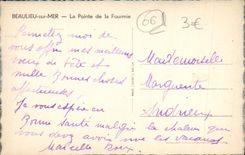 BEAULIEU-sur-MER — La Pointe de la Fourmie
06
3€
Permettez moi de
vous offrir mes meilleurs
vœux de fête et
mille bonnes choses
affectueuses,
Je vous espère en
bonne santé malgré la chaleur que
vous devez avoir
Marcelle Roux
Mademoiselle
Marguerite